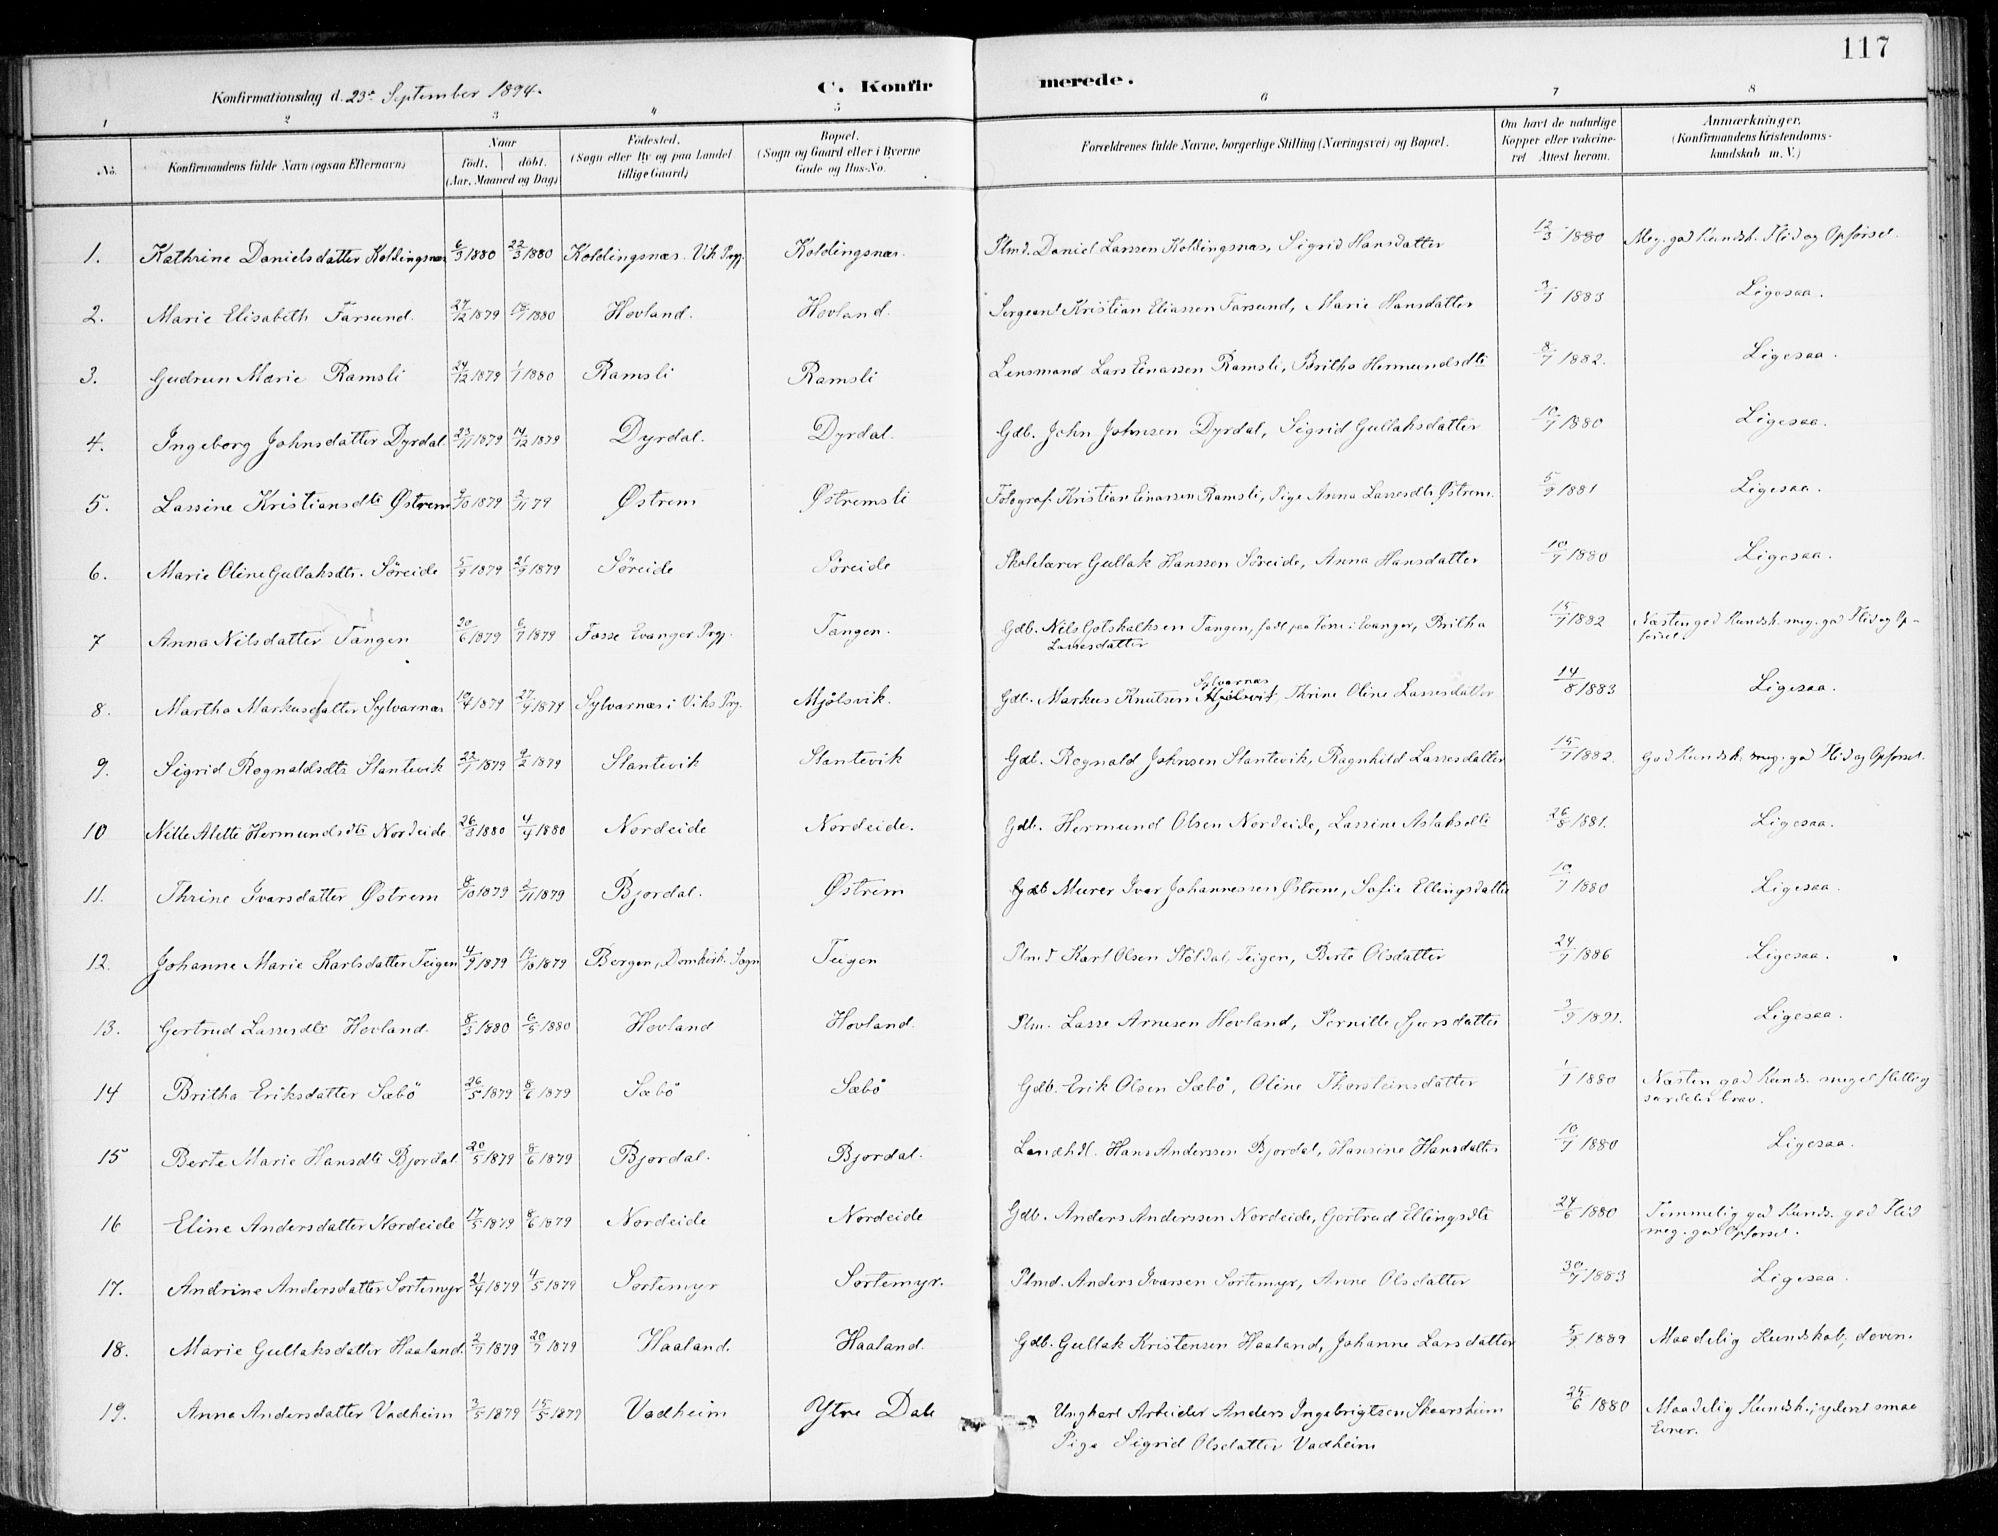 117
Konfirmationsdag d. 23de September 1894.
C. Konfirmerede.
1 2 3 4 5 6 7 8
No. | Konfirmandens fulde Navn (ogsaa Efternavn) | Naar født, døbt. (Aar, Maaned og Dag) | Fødested. (Sogn eller By og paa Landet tillige Gaard) | Bopæl. (Sogn og Gaard eller i Byerne Gade og Hus-No. | Forældrenes fulde Navne, borgerlige Stilling (Næringsvei) og Bopæl. | Om havt de naturlige Kopper eller vakcineret Attest herom. | Anmærkninger. (Konfirmandens Kristendomskundskab m. V.)
1. Kathrine Danielsdatter Koldingsnæs 6/3 1880 22/3 1880 Koldingsnæs. Vik Prgj. Koldingsnæs. Plmd. Daniel Larssen Koldingsnæs, Sigrid Hansdatter 12/3 1880 Meg. god Kundsk. Flid og Opførsel.
2. Marie Elisabeth Farsund. 27/12 1879 18/1 1880 Hovland. Hovland. Sergeant Kristian Eliassen Farsund, Marie Hansdatter 3/7 1883 Ligesaa.
3. Gudrun Marie Ramsli 24/12 1879 1/1 1880 Ramsli Ramsli Lensmand Lars Einarsen Ramsli, Britha Hermundsdtr 8/7 1882. Ligesaa.
4. Ingeborg Johnsdatter Dyrdal 23/11 1879 14/12 1879 Dyrdal. Dyrdal. Gdb. John Johnsen Dyrdal, Sigrid Gullaksdatter 10/7 1880 Ligesaa.
5. Lassine Kristiansdtr Østrem 9/10 1879 2/11 79 Østrem Østremsli Fotograf Kristian Einarsen Ramsli, Pige Anna Lassesdtr Østrem. 5/9 1881 Ligesaa.
6. Marie Oline Gullaksdtr. Søreide 5/9 1879 21/9 1879 Søreide Søreide Skolelærer Gullak Hanssen Søreide, Anna Hansdatter 10/7 1880 Ligesaa.
7 Anna Nilsdatter Tangen 20/6 1879 6/7 1879 Fosse Evanger Prgj. Tangen. Gdb. Nils Gotskalksen Tangen, født paa Fosse i Evanger, Britha Lassesdatter 15/7 1882 Næsten god Kundsk. meg. god Flid og Opførsel.
8. Martha Markusdatter Sylvarnæs 10/4 1879 27/4 1879 Sylvarnæs i Viks Prg. Mjølsvik. Gdb. Markus Knutsen Mjølsvik Sylvarnæs, Thrine Oline Lassesdatter 14/8 1883 Ligesaa.
9. Sigrid Rognaldsdtr Slantevik 22/1 1879 9/2 1879 Slantevik Slantevik Gdb. Rognald Johnsen Slantevik, Ragnhild Lassesdatter 15/7 1882. God Kundsk. meg. god Flid og Opførsel.
10 Nille Alette Hermundsdtr Nordeide 26/3 1880 4/4 1880 Nordeide Nordeide. Gdb. Hermund Olsen Nordeide, Lassine Aslaksdtr 26/8 1881. Ligesaa.
11. Thrine Ivarsdatter Østrem 8/10 1879 2/11 1879 Bjordal. Østrem Gdb Murer Ivar Johannessen Østrem, Sofie Ellingsdatter 10/7 1880 Ligesaa.
12. Johanne Marie Karlsdatter Teigen 4/9 1879 19/10 1879 Bergen, Domkirk. Sogn Teigen Plmd Karl Olsen Støldal Teigen, Berte Olsdatter 24/7 1886 Ligesaa.
13. Gertrud Lassesdtr Hovland. 8/3 1880 6/5 1880 Hovland Hovland. Plm. Lasse Arnesen Hovland, Pernille Sjursdatter 3/9 1891. Ligesaa.
14 Britha Eriksdatter Sæbö 26/5 1879 8/6 1879 Sæbö Sæbö Gdb. Erik Olsen Sæbö, Oline Thorsteinsdatter 1/7 1880 Næsten god Kunds. meget flittig særdeles brav.
15 Berte Marie Hansdtr Bjordal. 20/5 1879 8/6 1879 Bjordal. Bjordal. Landhdl. Hans Anderssen Bjordal, Hansine Hansdatter 10/7 1880 Ligesaa.
16 Eline Andersdatter Nordeide 17/5 1879 8/6 1879 Nordeide Nordeide Gdb. Anders Anderssen Nordeide, Gertrud Ellingsdtr 24/6 1880 Temmelig god Kunds. god Flid meg. god Opførsel.
17. Andrine Andersdatter Sortemyr 21/4 1879 4/5 1879 Sortemyr Sortemyr. Plmd. Anders Ivarsen Sortemyr, Anne Olsdatter 30/7 1883 Ligesaa.
18. Marie Gullaksdatter Haaland. 2/7 1879 20/7 1879 Haaland. Haaland. Gdb. Gullak Kristensen Haaland, Johanne Larsdatter 5/9 1889 Maadelig Kundskab, doven.
19. Anna Andersdatter Vadheim 3/5 1879 15/5 1879 Vadheim Ytre Dale Ungkarl Arbeider Anders Ingebrigtsen Skaarsheim Pige Sigrid Olsdatter Vadheim 25/6 1880 Maadelig Kundsk.; yderst smaa Evner.